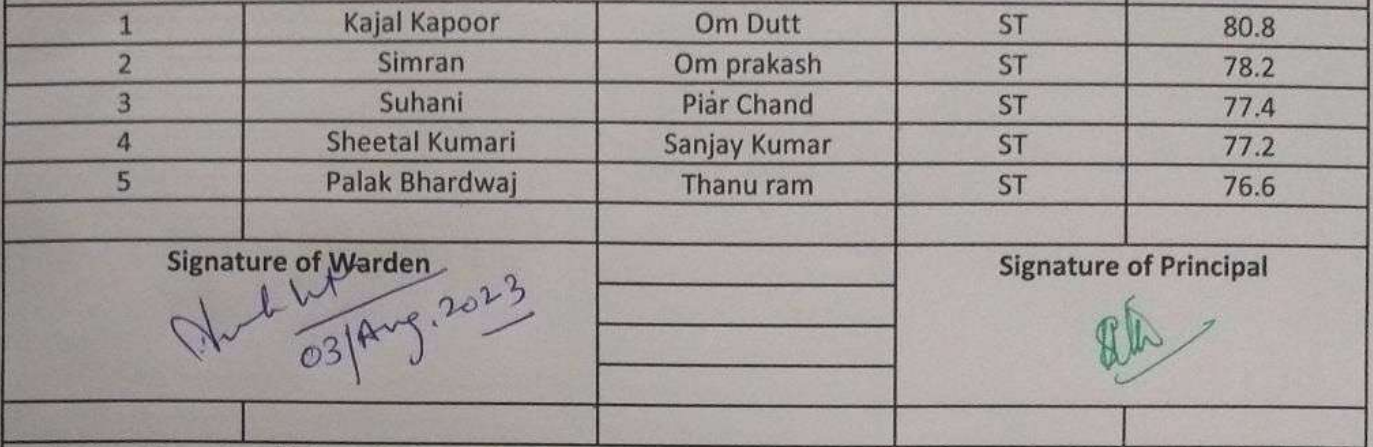 1 Kajal Kapoor Om Dutt ST 80.8
2 Simran Om prakash ST 78.2
3 Suhani Piar Chand ST 77.4
4 Sheetal Kumari Sanjay Kumar ST 77.2
5 Palak Bhardwaj Thanu ram ST 76.6
Signature of Warden Signature of Principal
03/Aug.2023